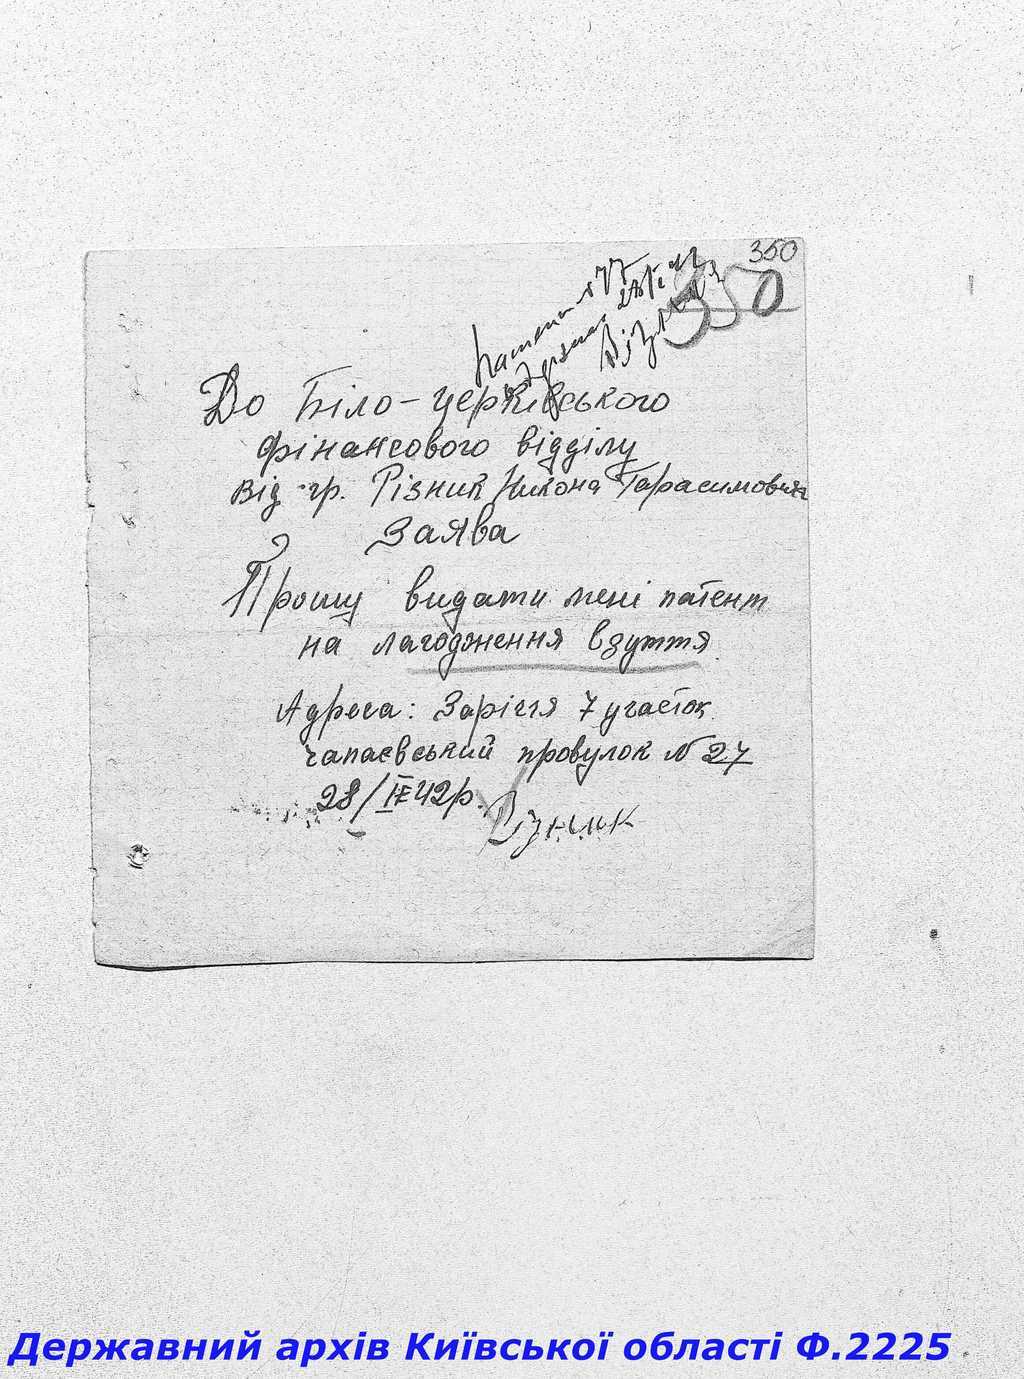 350
350
Патент №77
одержав 28/IV 42
Різник
До Біло-церківського
фінансового відділу
від гр. Різник Никона Тарасимовича
Заява
Прошу видати мені патент
на лагодження взуття.
Адреса: Заріччя 7 участок
чапаєвський провулок № 27
28/IV 42р. Різник
Державний архів Київської області Ф.2225